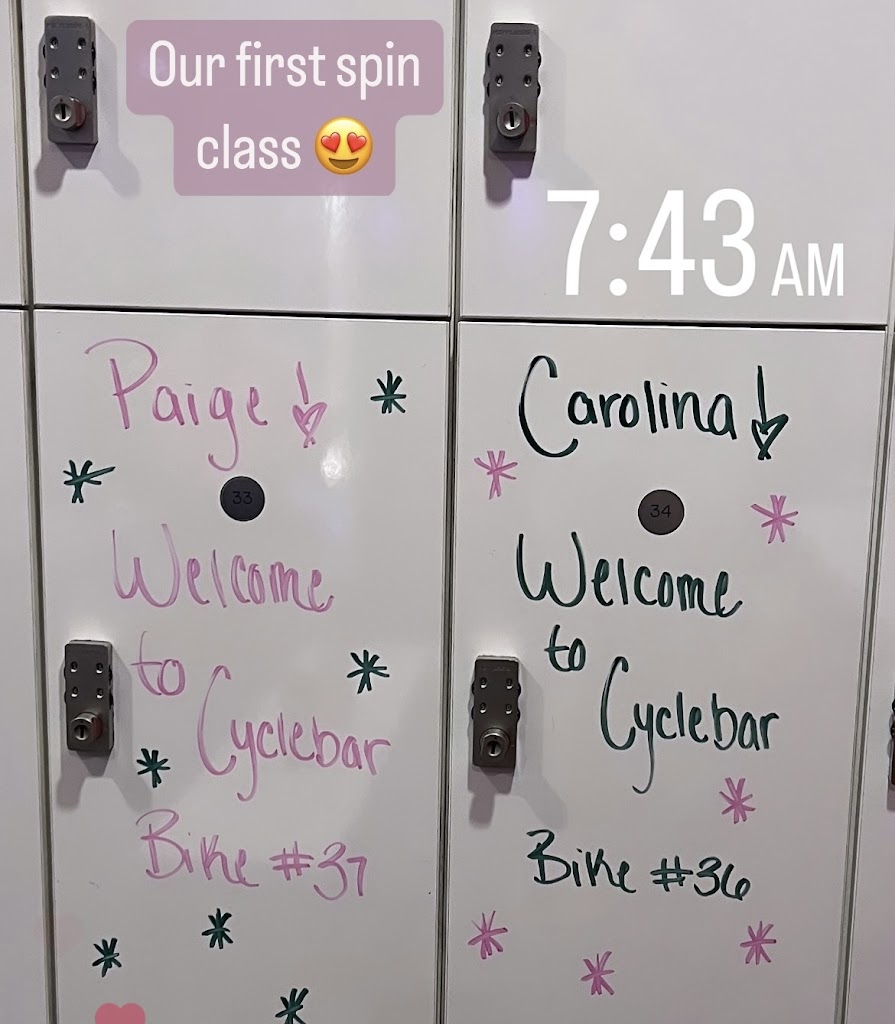 Our first spin
class 😍
7:43 AM
Paige!
33
Welcome
to
Cyclebar
Bike #37
Carolina!
34
Welcome
to
Cyclebar
Bike #36